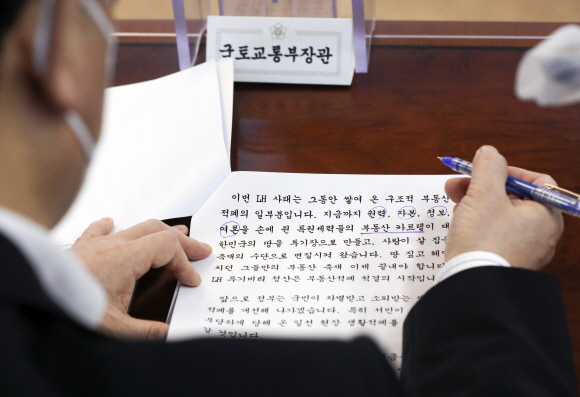 국토교통부장관
이번 LH 사태는 그동안 쌓여 온 구조적 부동산
적폐의 일부분입니다. 지금까지 권력, 자본, 정보,
여론을 손에 쥔 특권세력들의 부동산 카르텔이 대
한민국의 땅을 투기장으로 만들고, 사람이 살 집
축재의 수단으로 변질시켜 왔습니다. 땅 짚고 헤
치던 그들만의 부동산 축재 이제 끝내야 합니다
LH 투기비리 청산은 부동산적폐 척결의 시작입니
앞으로 정부는 국민이 차별받고 소외받는
적폐를 개선해 나가겠습니다. 특히 서민이
부당하게 당해 온 일선 현장 생활적폐를
갈 것입니다